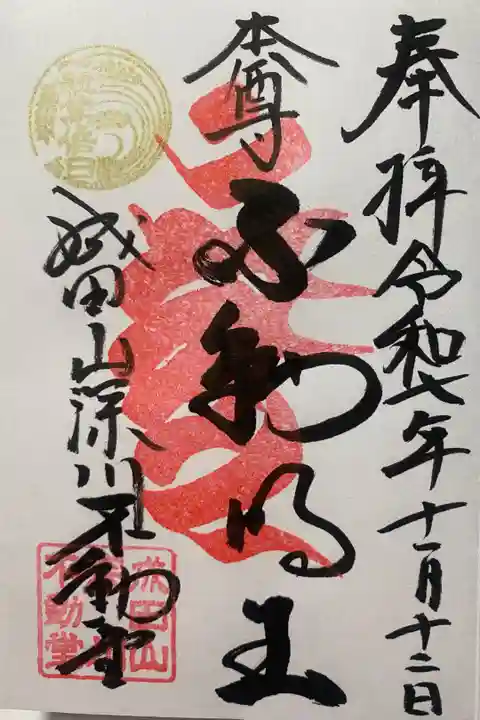 奉拝 令和七年十一月十二日
本尊
不動明王
成田山深川不動堂
成田山
不動堂